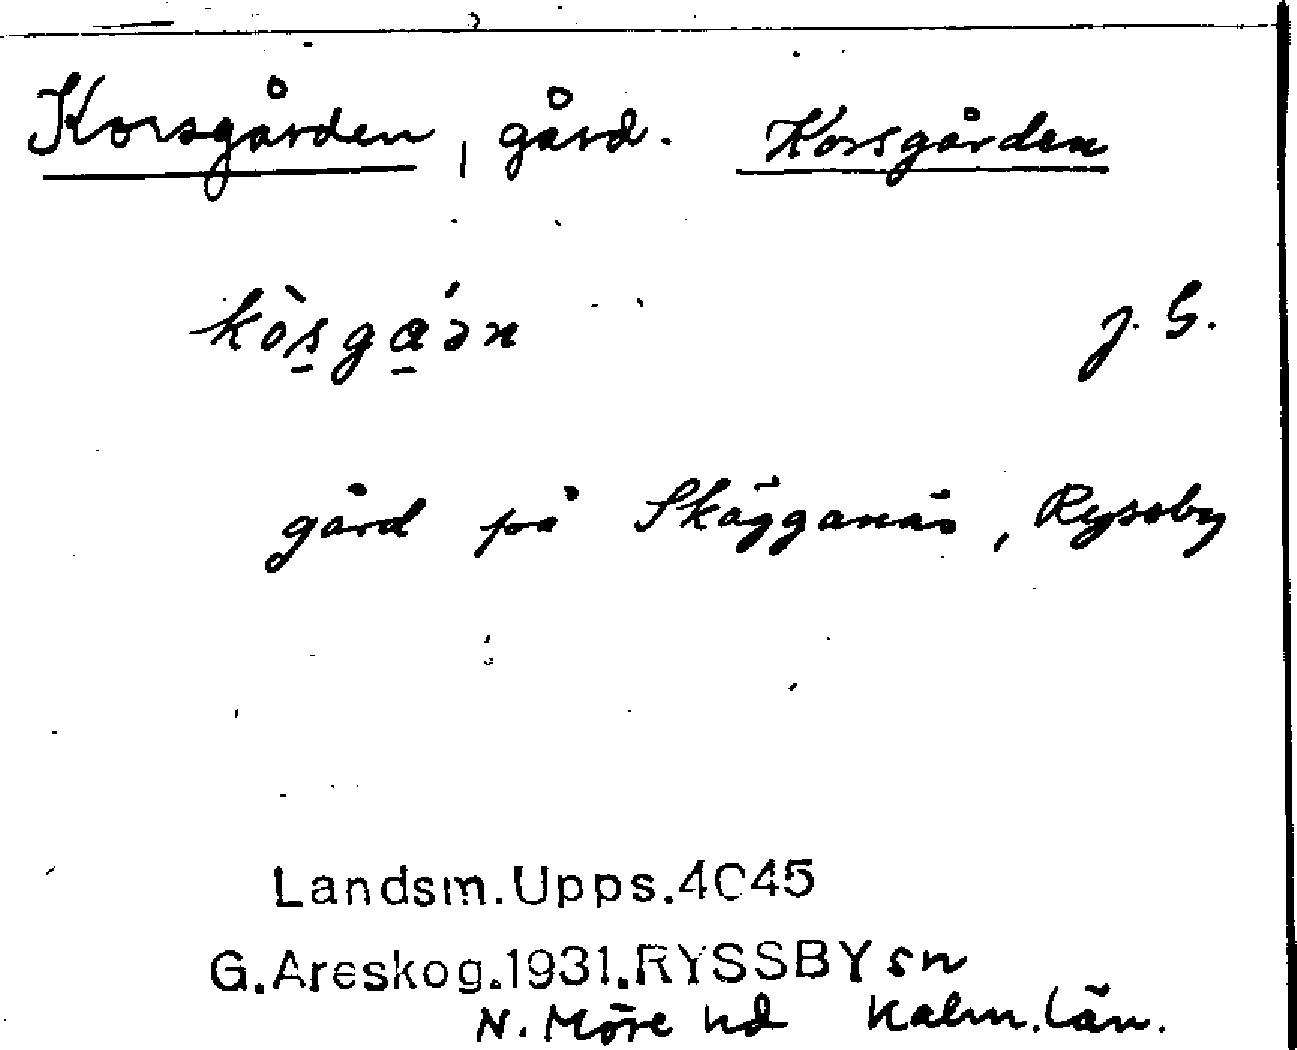 Korsgården, gård. Korsgården
kòs̱gá̱ən J. G.
gård på Skägganäs, Ryssby
Landsm.Upps.4045
G.Areskog.1931.RYSSBY sn
N. Möre hd Kalm. län.